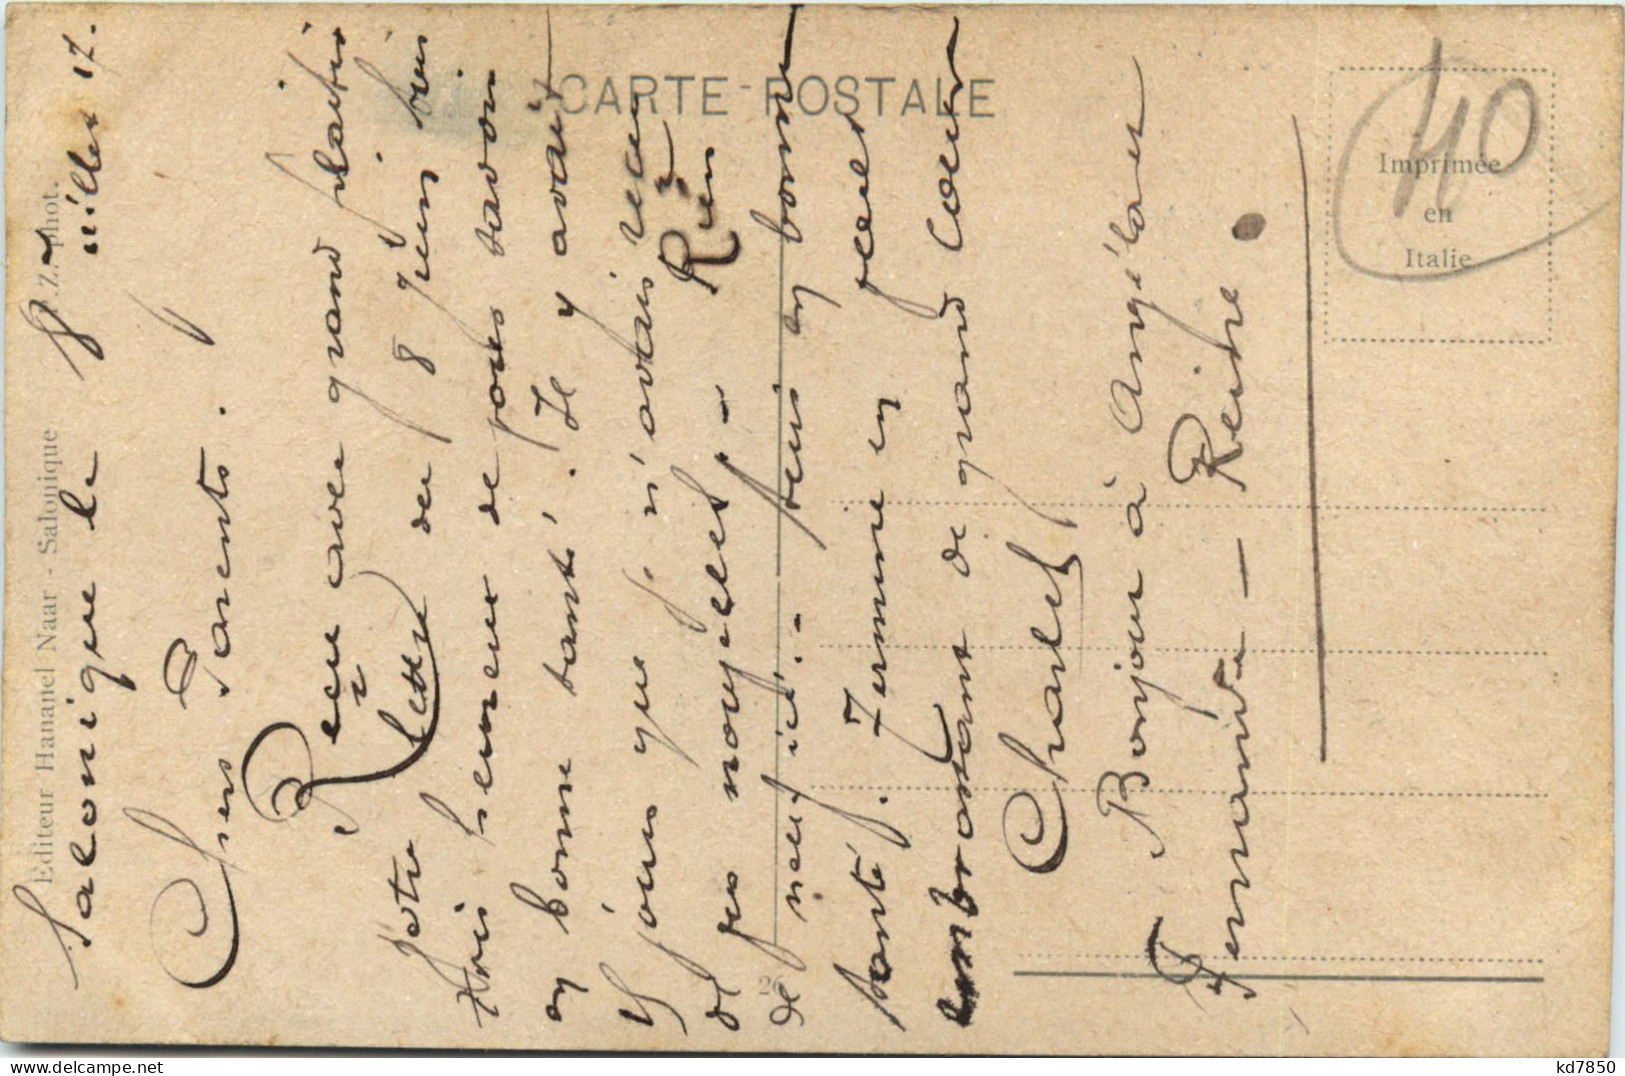 CARTE POSTALE
Imprimée
en
Italie
40
Editeur Hananel Naar - Salonique
Z. phot.
26
Salonique le 8 juillet 17.
Chers Parents.
Reçu avec grand plaisir
votre lettre du 8 juin bien
très heureux de vous savoir
en bonne santé. Il y avait
15 jours que je n'avais reçu
de vos nouvelles. - Rien
de neuf ici. - suis en bonne
santé. Termine en vous
embrassant de grand coeur
Charles
Bonjour à Angélane
Fernande - Reine.
kd7850